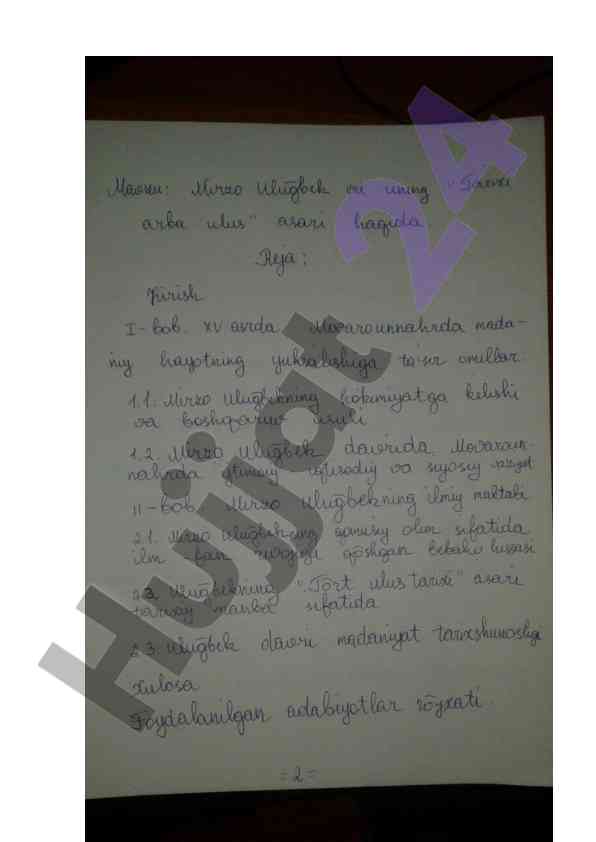 Mavzu: Mirzo Ulug̃bek va uning "Tarixi
arba ulus" asari haqida
Reja:
Kirish
I-bob. XV asrda Movarounnahrda mada-
niy hayotning yuksalishiga ta'sir omillar.
1.1. Mirzo Ulug̃bekning hokimiyatga kelishi
va boshqaruv usuli
1.2. Mirzo Ulug̃bek davrida Movaroun-
nahrda ijtimoiy iqtisodiy va siyosiy vaziyat
II-bob. Mirzo Ulug̃bekning ilmiy maktabi
2.1. Mirzo Ulug̃bekning qomusiy olim sifatida
ilm fan rivojiga qõshgan bebaho hissasi
2.2. Ulug̃bekning "Tõrt ulus tarixi" asari
tarixiy manba sifatida
2.3. Ulug̃bek davri madaniyat tarixshunosligi
Xulosa
Foydalanilgan adabiyotlar rõyxati.
=2=
Hujjat 24